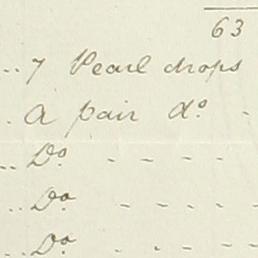 63
.. 7 Pearl drops
. A pair Do. .
.. Do. . - - -
.. Do. - - - -
.. Do. . . - -